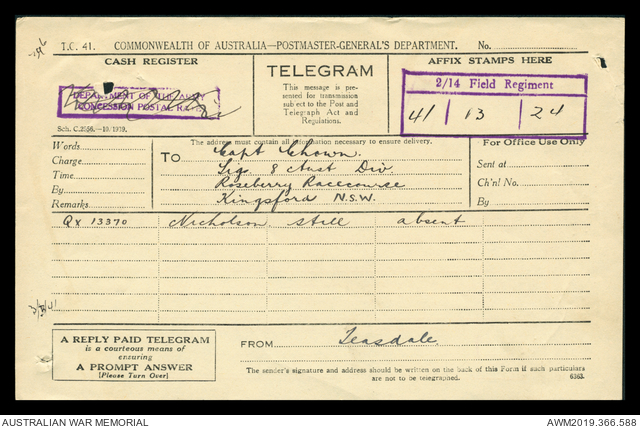 T.C. 41. COMMONWEALTH OF AUSTRALIA—POSTMASTER-GENERAL'S DEPARTMENT. No.
CASH REGISTER
DEPARTMENT OF THE ARMY
CONCESSION POSTAL RATES
Sch. C.2556.—10/1939.
TELEGRAM
This message is presented for transmission subject to the Post and Telegraph Act and Regulations.
AFFIX STAMPS HERE
2/14 Field Regiment
41 13 24
The address must contain all information necessary to ensure delivery.
Words
Charge
Time
By
Remarks
TO Capt Chown.
Sig. 8 Aust Div.
Roseberry Racecourse
Kingsford N.S.W.
For Office Use Only
Sent at
Ch'nl No.
By
QX 13370 Nicholson still absent
A REPLY PAID TELEGRAM
is a courteous means of
ensuring
A PROMPT ANSWER
[Please Turn Over]
FROM Teasdale
The sender's signature and address should be written on the back of this Form if such particulars
are not to be telegraphed.
6363.
AUSTRALIAN WAR MEMORIAL AWM2019.366.588